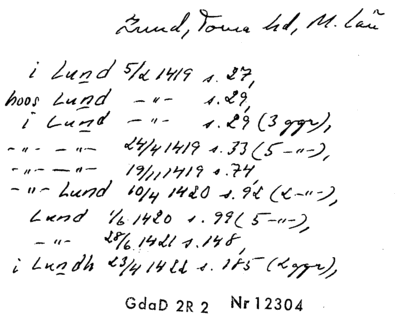 Lund, Torna hd, M. län
i Lund 5/2 1419 s. 27,
hoos Lund -"- s. 29,
i Lund -"- s. 29 (3 ggr),
-"- -"- 24/4 1419 s. 33 (5 -"-),
-"- -"- 19/11 1419 s. 74,
-"- Lund 10/4 1420 s. 92 (2 -"-),
Lund 1/6 1420 s. 99 (5 -"-),
-"- 28/6 1421 s. 148,
i Lundh 23/4 1422 s. 185 (2 ggr),
GdaD 2R 2 Nr 12304